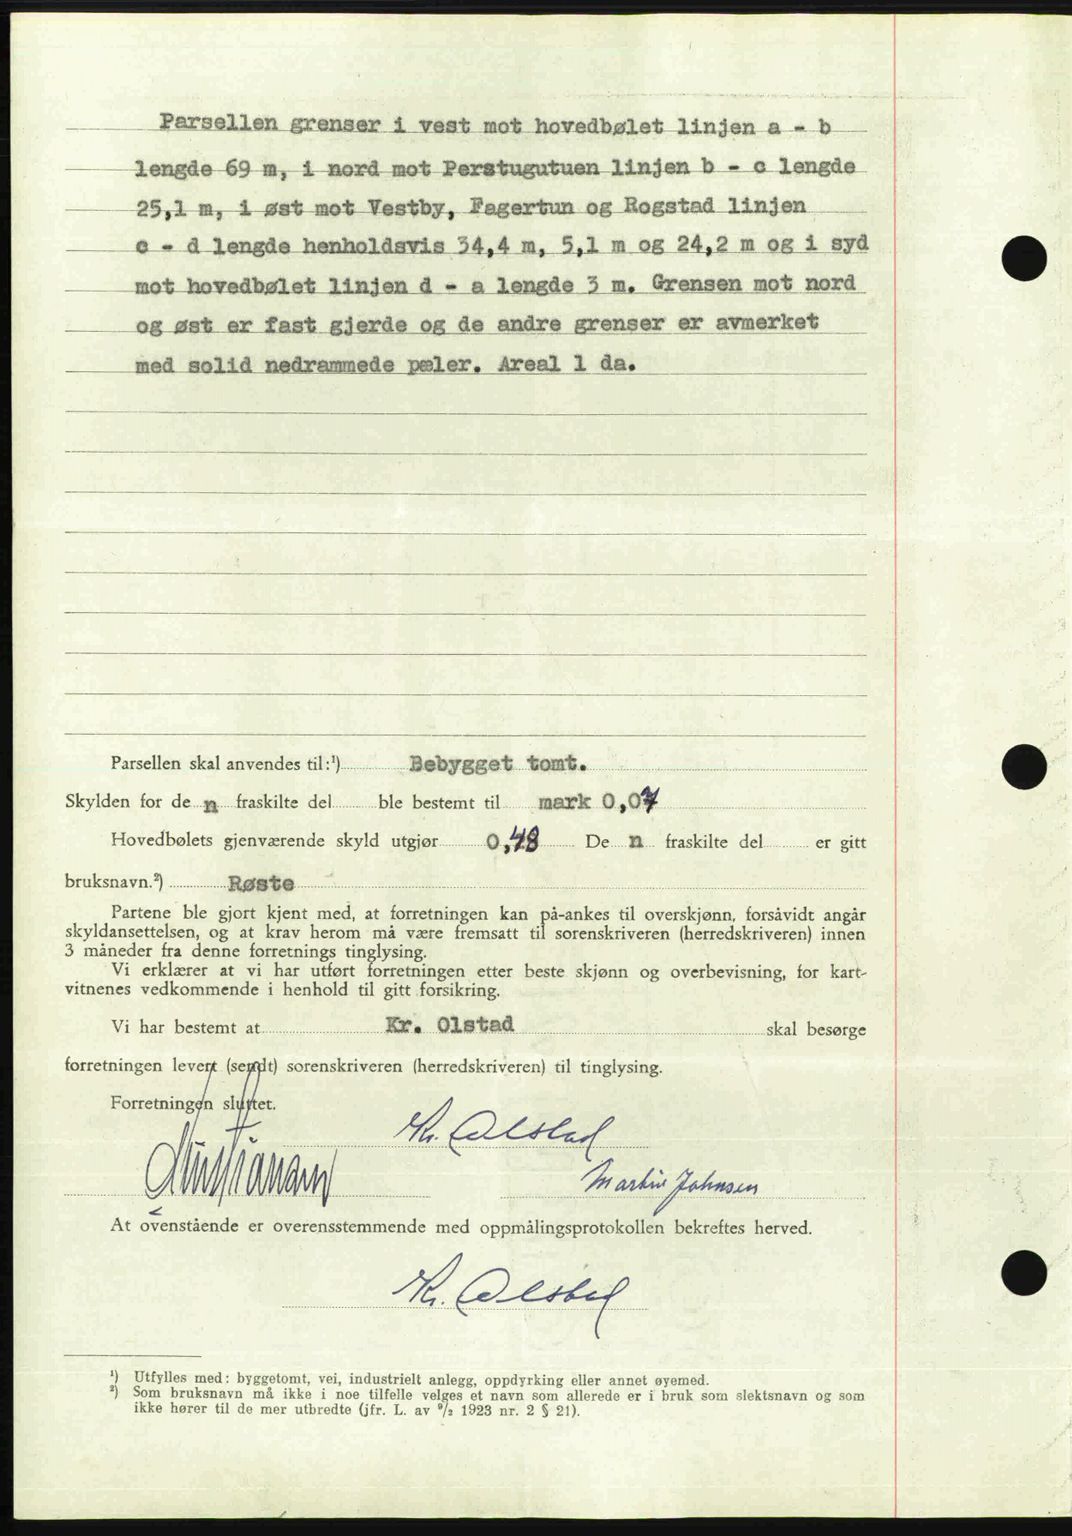 Parsellen grenser i vest mot hovedbølet linjen a - b
lengde 69 m, i nord mot Perstugutuen linjen b - c lengde
25,1 m, i øst mot Vestby, Fagertun og Rogstad linjen
c - d lengde henholdsvis 34,4 m, 5,1 m og 24,2 m og i syd
mot hovedbølet linjen d - a lengde 3 m. Grensen mot nord
og øst er fast gjerde og de andre grenser er avmerket
med solid nedrammede pæler. Areal 1 da.
Parsellen skal anvendes til:¹) Bebygget tomt.
Skylden for de n fraskilte del ble bestemt til mark 0,07
Hovedbølets gjenværende skyld utgjør 0,48 De n fraskilte del er gitt
bruksnavn.²) Røste
Partene ble gjort kjent med, at forretningen kan på-ankes til overskjønn, forsåvidt angår
skyldansettelsen, og at krav herom må være fremsatt til sorenskriveren (herredskriveren) innen
3 måneder fra denne forretnings tinglysing.
Vi erklærer at vi har utført forretningen etter beste skjønn og overbevisning, for kart-
vitnenes vedkommende i henhold til gitt forsikring.
Vi har bestemt at Kr. Olstad skal besørge
forretningen levert (sendt) sorenskriveren (herredskriveren) til tinglysing.
Forretningen sluttet.
Kr. Olstad
Martin Johnsen
At ovenstående er overensstemmende med oppmålingsprotokollen bekreftes herved.
Kr. Olstad
¹) Utfylles med: byggetomt, vei, industrielt anlegg, oppdyrking eller annet øyemed.
²) Som bruksnavn må ikke i noe tilfelle velges et navn som allerede er i bruk som slektsnavn og som
ikke hører til de mer utbredte (jfr. L. av ⁹/₂ 1923 nr. 2 § 21).